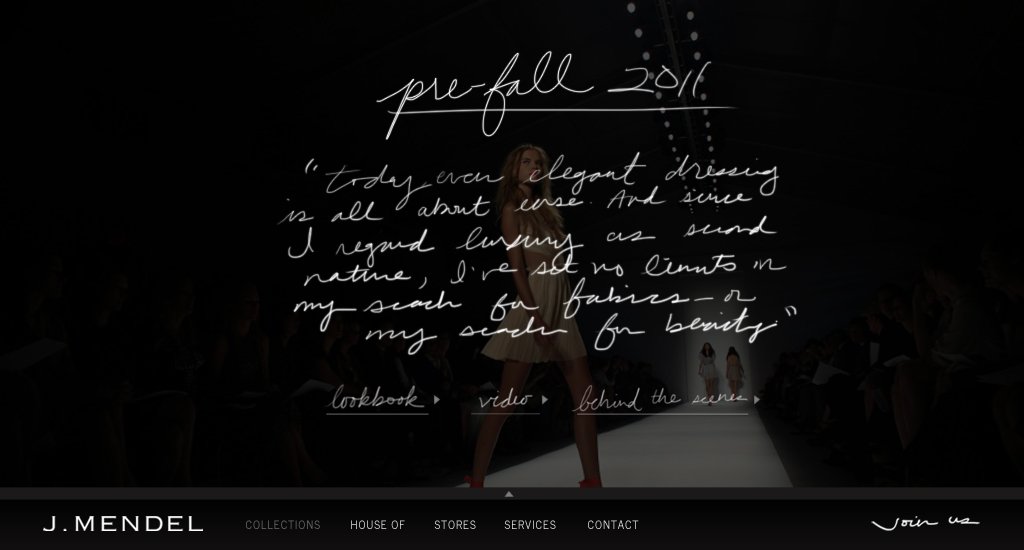 pre-fall 2011
"today even elegant dressing
is all about ease. And since
I regard luxury as second
nature, I've set no limits in
my search for fabrics - or
my search for beauty"
lookbook video behind the scenes
J. MENDEL COLLECTIONS HOUSE OF STORES SERVICES CONTACT join us